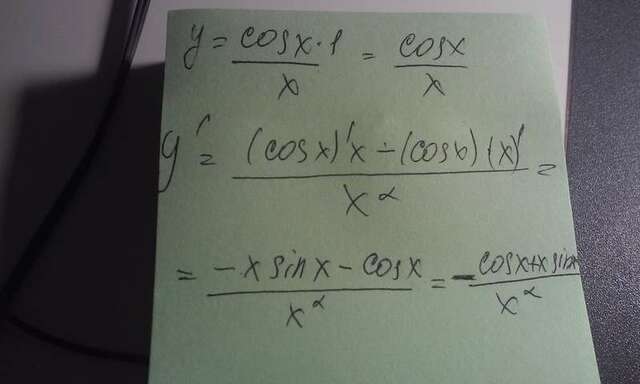 y = cosx·1/x = cosx/x
y' = (cosx)'x - (cosx)(x)'/x² =
= -x sinx - cosx/x² = - cosx+x sinx/x²